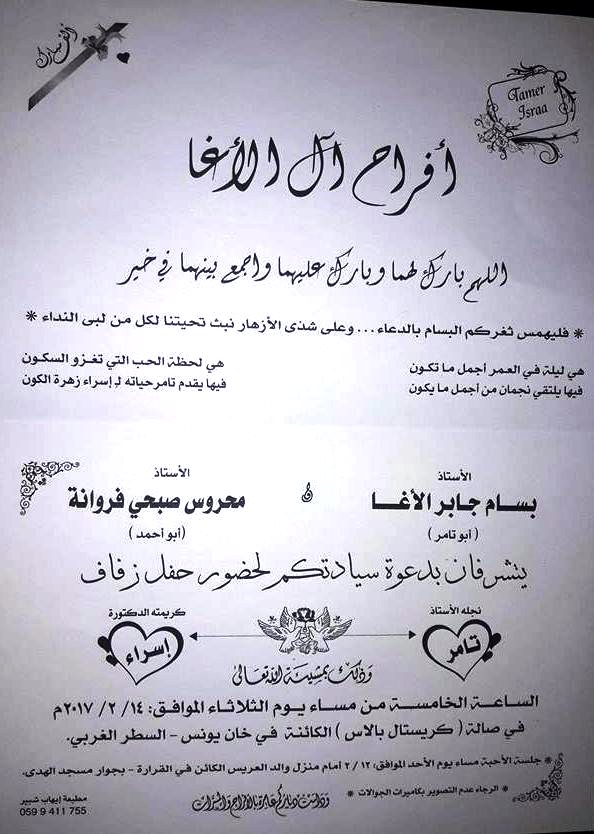 ألف مبارك
Tamer
Israa
أفراح آل الأغا
اللهم بارك لهما وبارك عليهما واجمع بينهما في خير
* فليهمس ثغركم البسام بالدعاء ... وعلى شذى الأزهار نبث تحيتنا لكل من لبى النداء *
هي ليلة في العمر أجمل ما تكون هي لحظة الحب التي تغزو السكون
فيها يلتقي نجمان من أجمل ما يكون فيها يقدم تامر حياته لـ إسراء زهرة الكون
الأستاذ الأستاذ
بسام جابر الأغا و محروس صبحي فروانة
( أبو تامر ) (أبو أحمد )
يتشرفان بدعوة سيادتكم لحضور حفل زفاف
نجله الأستاذ كريمته الدكتورة
تامر إسراء
وذلك بمشيئة الله تعالى
الساعة الخامسة من مساء يوم الثلاثاء الموافق: ١٤/ ٢/ ٢٠١٧م
في صالة ( كريستال بالاس ) الكائنة في خان يونس - السطر الغربي.
* جلسة الأحبة مساء يوم الأحد الموافق: ٢/١٢ أمام منزل والد العريس الكائن في القرارة - بجوار مسجد الهدى.
* الرجاء عدم التصوير بكاميرات الجوالات *
ودامت دياركم عامرة بالأفراح والمسرات
مطبعة إيهاب شبير
059 9 411 755